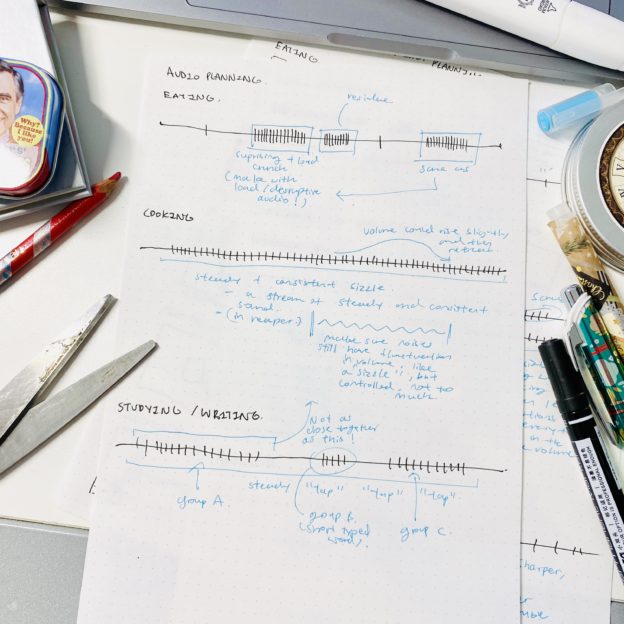 EATING
AUDIO PLANNING
EATING.
residue
suprising + loud
crunch
(make with
loud/disruptive
audio!)
same as
COOKING
volume could rise slightly
and then
retreat.
steady + consistent sizzle.
- a stream of steady and consistent
sound.
- (in reaper.)
make sure noises
still have fluctuation
in volume, like
a sizzle", but
controlled, not too
much
STUDYING/WRITING.
Not as
close together
as this!
steady "tap" "tap" "tap".
group A
group B.
(short typed
word)
group C.
Why?
Because
I like
you!
same
sharper,